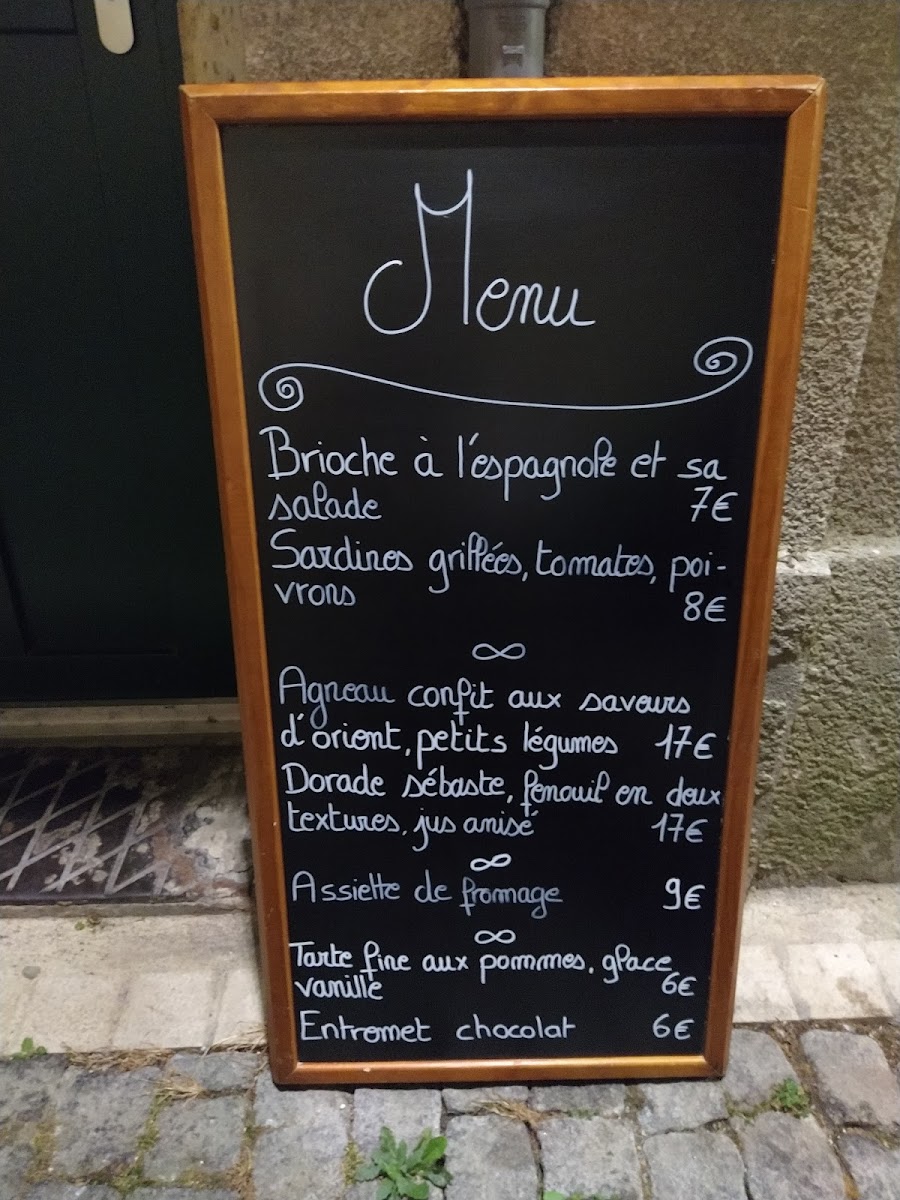 Menu
Brioche à l'espagnole et sa
salade 7€
Sardines grillées, tomates, poi-
vrons 8€
∞
Agneau confit aux saveurs
d'orient, petits légumes 17€
Dorade sébaste, fenouil en deux
textures, jus anisé 17€
∞
Assiette de fromage 9€
∞
Tarte fine aux pommes, glace
vanille 6€
Entremet chocolat 6€